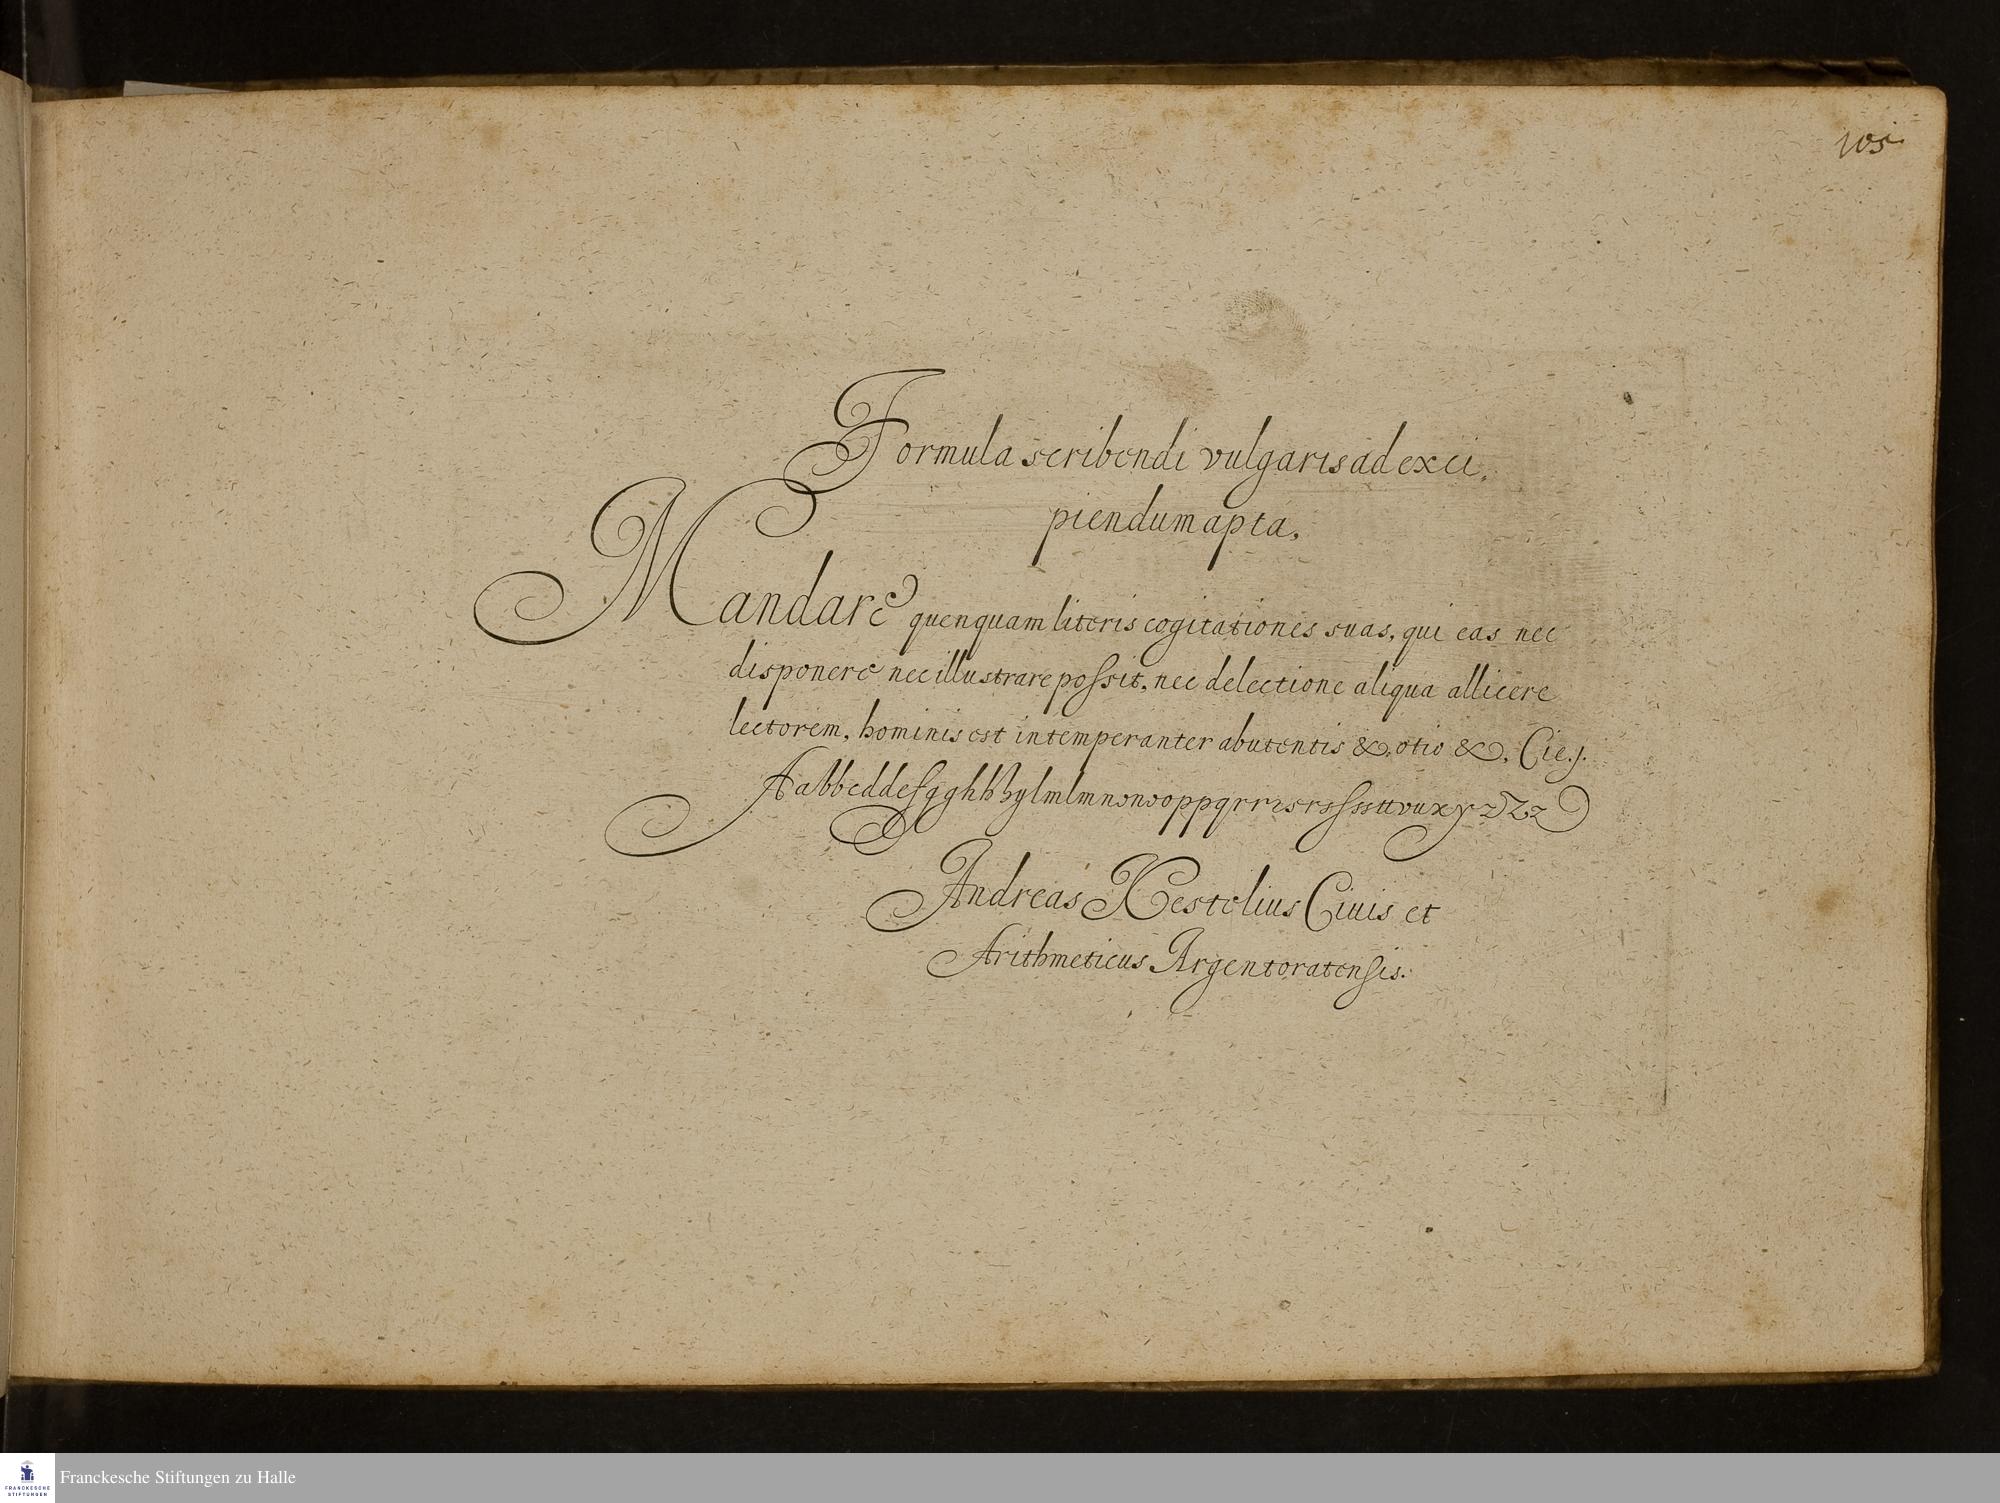 105
Formula scribendi vulgaris ad exci,
piendum apta.
Mandare quenquam literis cogitationes suas, qui eas nec
disponere nec illustrare possit, nec delectione aliqua allicere
lectorem, hominis est intemperanter abutentis & otio &, Cic. j.
Andreas Nestelius Ciuis et
Arithmeticus Argentoratensis.
FRANCKESCHE
STIFTUNGEN
Franckesche Stiftungen zu Halle